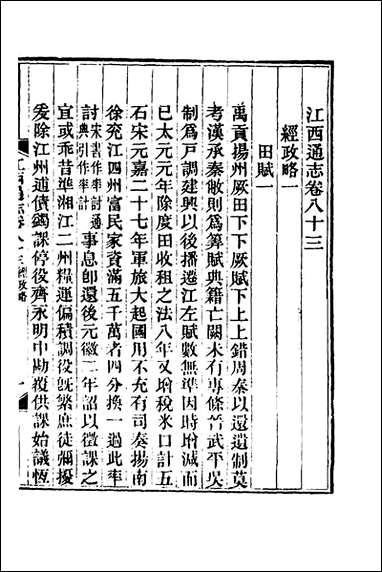 江西通志卷八十三
經政略一
田賦一
禹貢揚州厥田下下厥賦下上上錯周秦以還遺制莫
考漢承秦敝則爲算賦典籍亡闕未有專條晉武平吳
制爲戸調建興以後播遷江左賦數無準因時增減而
已太元元年除度田收租之法八年又增稅米口計五
石宋元嘉二十七年軍旅大起國用不充有司奏揚南
徐兗江四州富民家資滿五千萬者四分換一過此率
討宋書作率討通典引作率計事息卽還後元徽二年詔以徵課之
宜或乖昔準湘江二州糧運偏積調役旣繁庶徒彌擾
爰除江州逋債蠲課停役齊永明中勘覆供課始議恆
江西通志 卷八十三 經政略 一